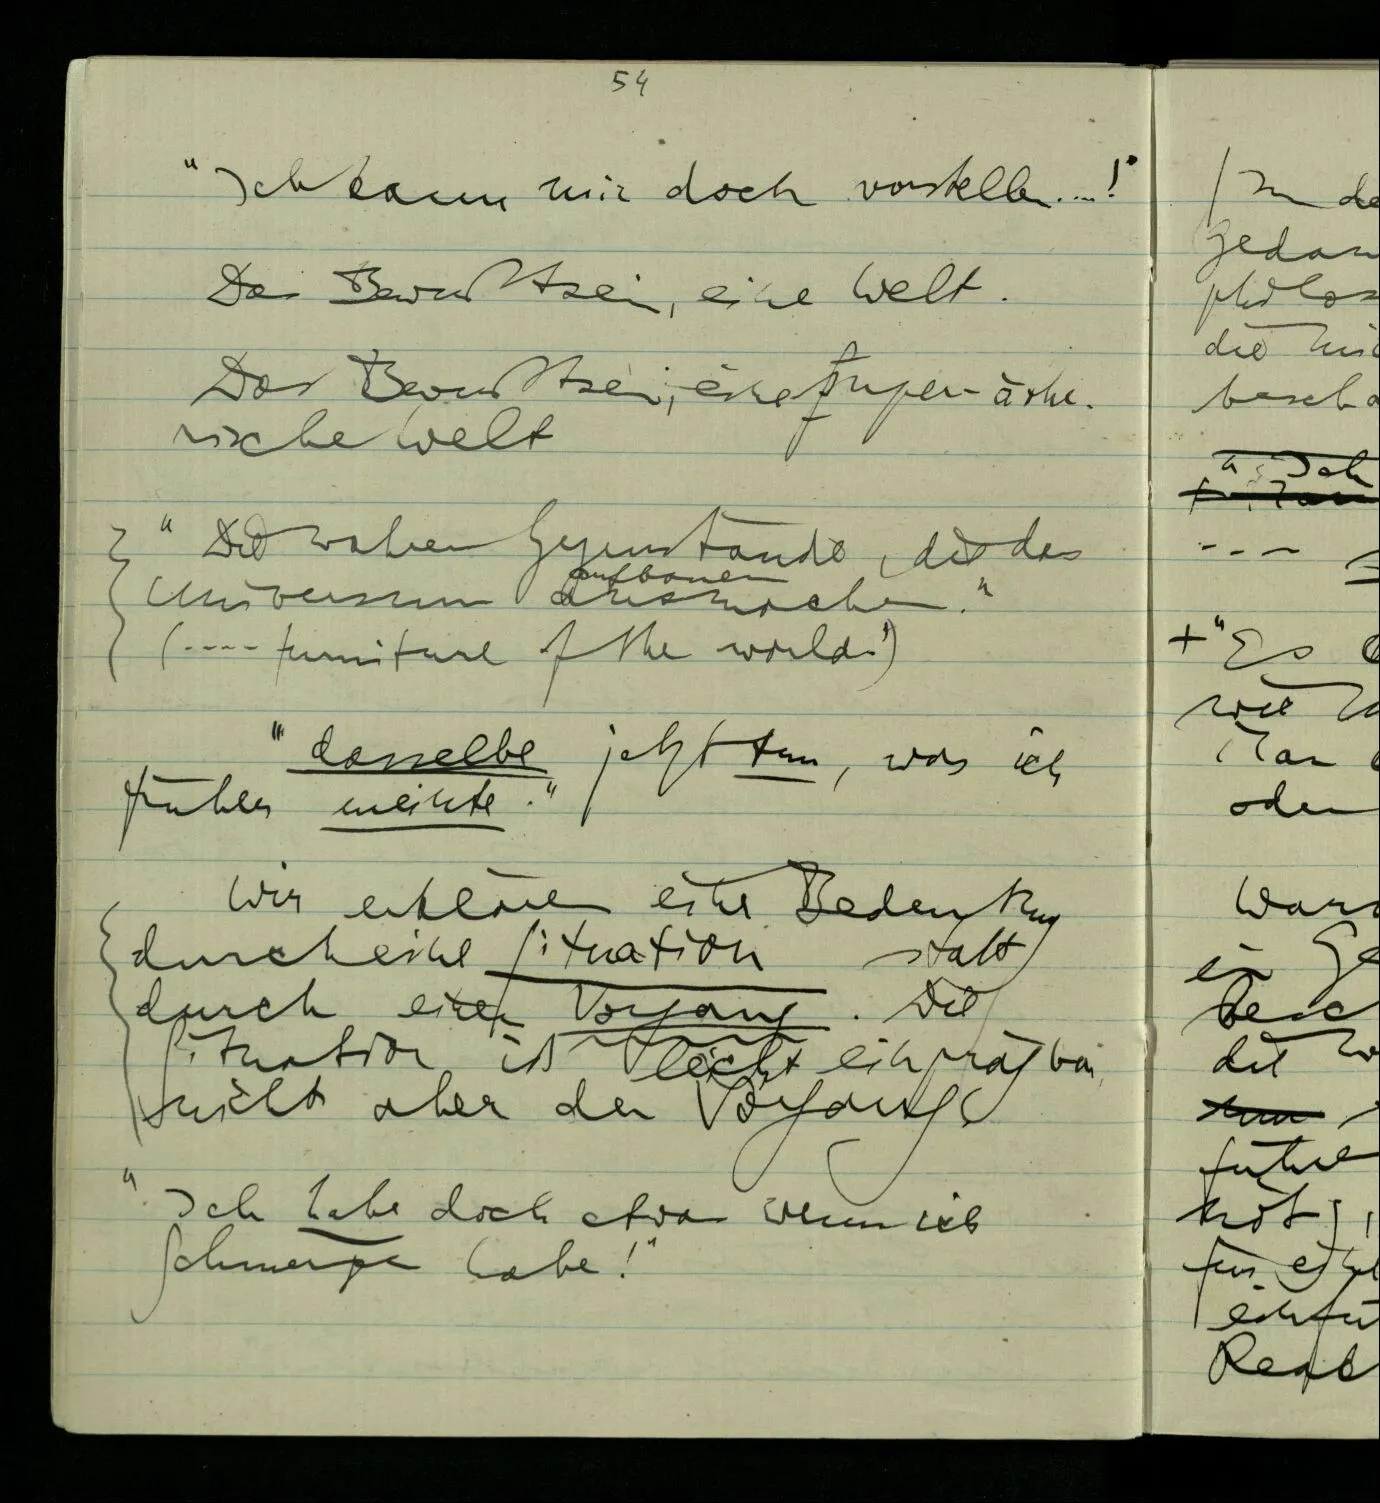 54
"Ich kann mir doch vorstellen....!"
Das Bewußtsein, eine Welt.
Das Bewußtsein, eine super-äthe-
rische Welt
"Die wahren Gegenstände, die das
aufbauen
Universum ausmachen."
(---- furniture of the world")
"dasselbe jetzt tun, was ich
früher meinte."
Wir erklären eine Bedeutung
durch eine Situation statt
durch einen Vorgang. Die
Situation ist leicht einprägbar,
nicht aber der Vorgang
"Ich habe doch etwas wenn ich
Schmerzen habe!"
die
"Ich
---
+"Es
wie
Man
oder
die
für